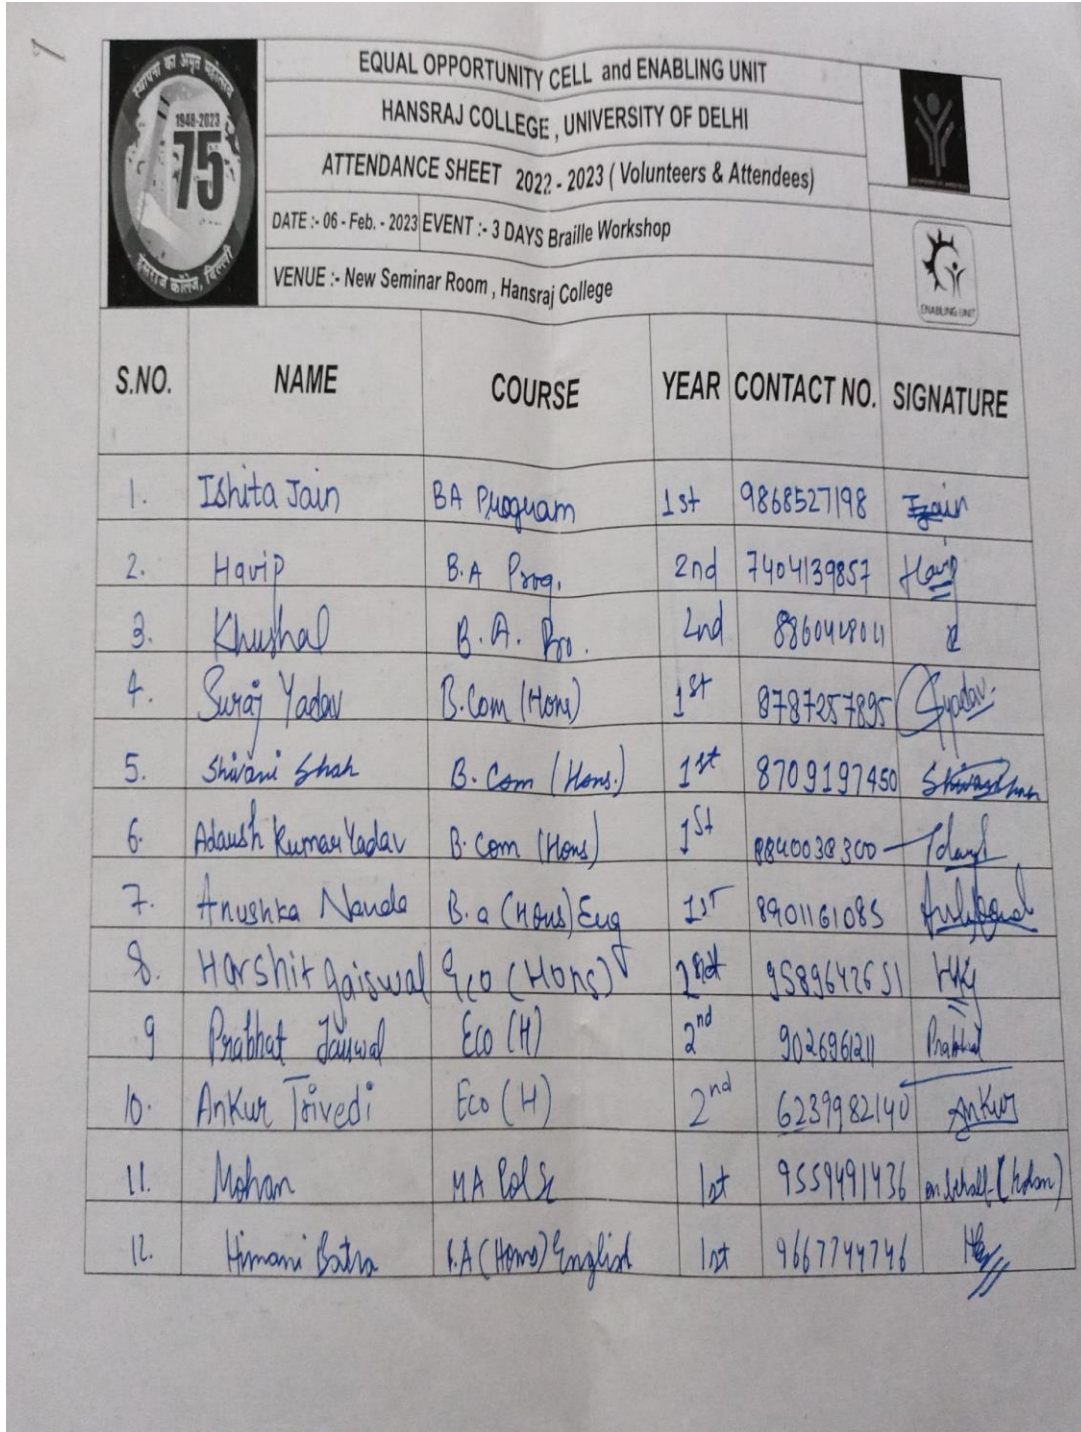 स्थापना का अमृत महोत्सव
1948-2023
75
हंसराज कॉलेज, दिल्ली
EQUAL OPPORTUNITY CELL and ENABLING UNIT
HANSRAJ COLLEGE, UNIVERSITY OF DELHI
ATTENDANCE SHEET 2022-2023 (Volunteers & Attendees)
DATE :- 06 - Feb. - 2023 EVENT :- 3 DAYS Braille Workshop
VENUE :- New Seminar Room, Hansraj College
ENABLING UNIT
S.NO. NAME COURSE YEAR CONTACT NO. SIGNATURE
1. Ishita Jain BA Program 1st 9868527198 Jain
2. Havip B.A Prog. 2nd 7404139857 Havip
3. Khushal B.A. Pro. 2nd
4. Suraj Yadav B.Com (Hons) 1st 8787257895 Syadav.
5. Shivani Shah B. Com (Hons.) 1st 8709197450
6. Adarsh Kumar Yadav B. Com (Hons) 1st 8840038300
7. Anushka Nanda B.a (Hons) Eng 1st 8901161085
8. Harshit Jaiswal Eco (Hons) 9589642651
9 Prabhat Jaiswal Eco (H) 2nd 9026961211 Prabhat
10. Ankur Trivedi Eco (H) 2nd 6239982140 Ankur
11. Mohan MA Pol Sc 1st 9559491436 on behalf-(Mohan)
12. Himani Batra B.A (Hons) English 1st 9667744746